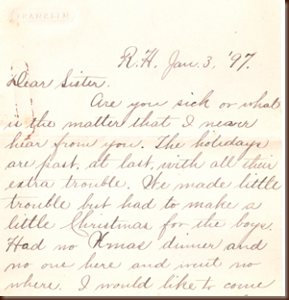 FRANKLIN
R.H. Jan. 3, '97.
Dear Sister.
Are you sick or what
is the matter that I never
hear from you. The holidays
are past, at last, with all their
extra trouble. We made little
trouble but had to make a
little Christmas for the boys.
Had no Xmas dinner and
no one here and went no
where. I would like to come